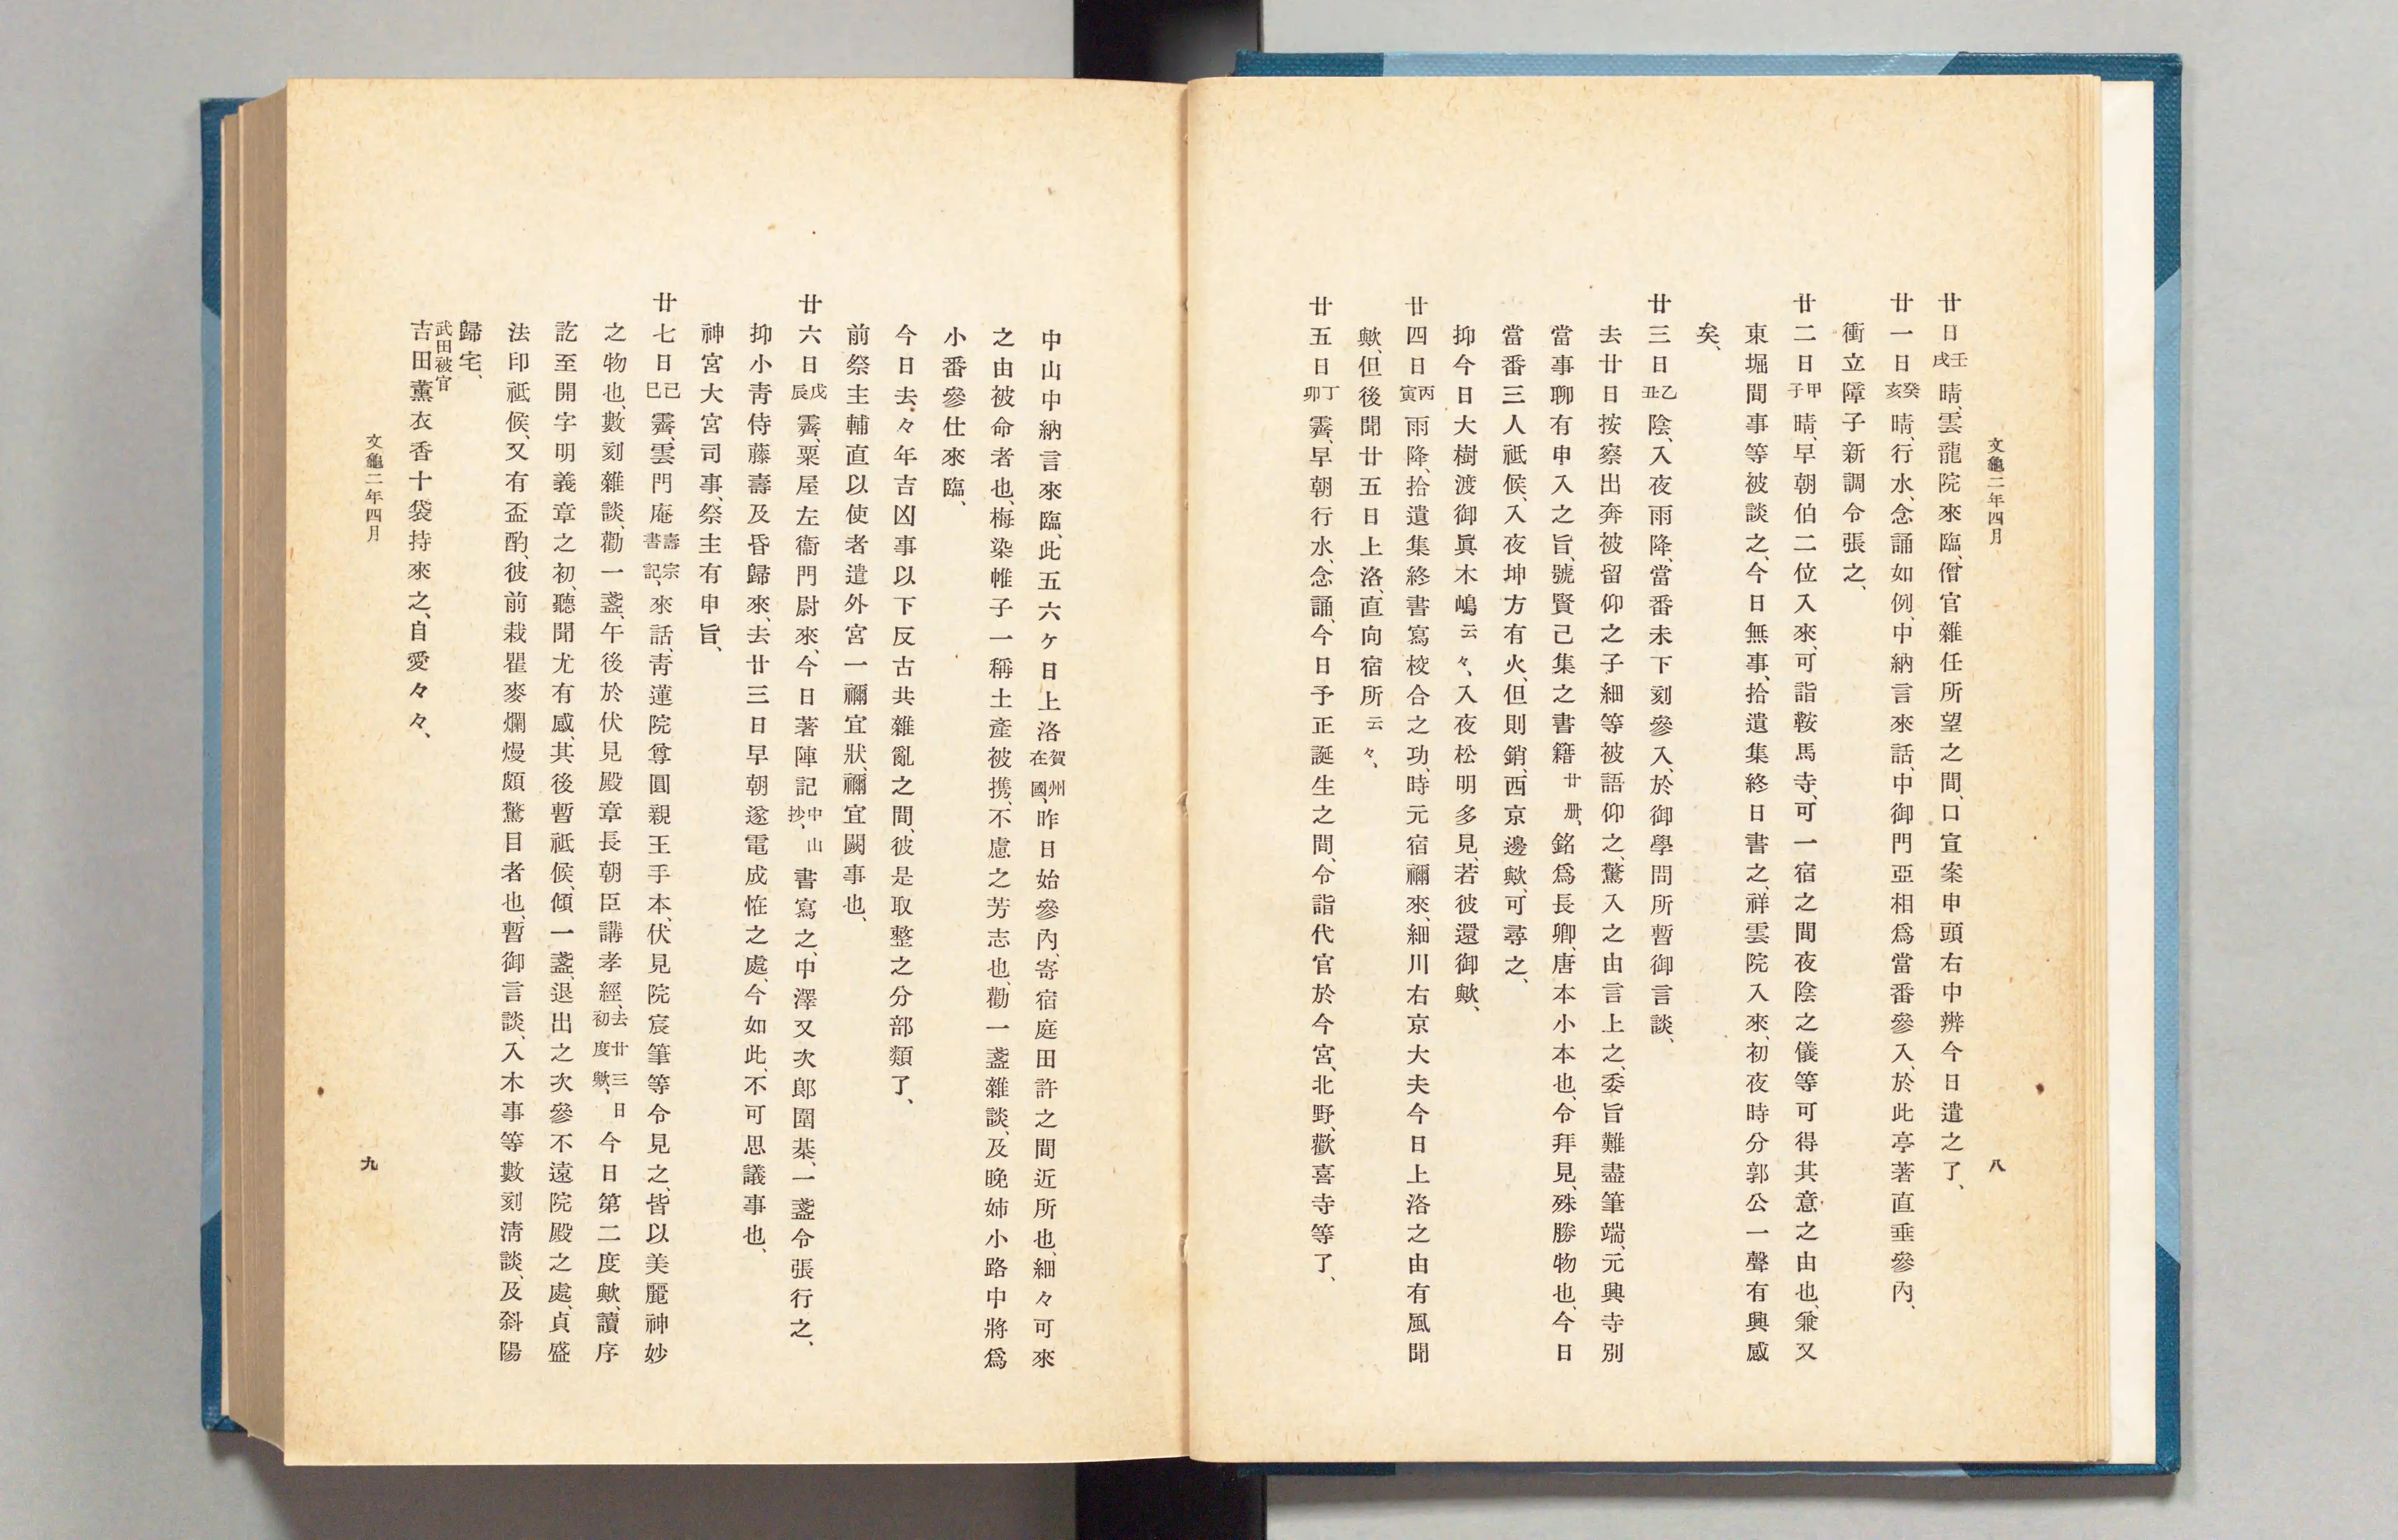 文龜二年四月
八
廿日壬戌晴、雲龍院來臨、僧官雜任所望之間、口宣案申頭右中辨今日遣之了、
廿一日癸亥晴、行水、念誦如例、中納言來話、中御門亞相爲當番參入、於此亭著直垂參內、
衝立障子新調令張之、
廿二日甲子晴、早朝伯二位入來、可詣鞍馬寺、可一宿之間夜陰之儀等可得其意之由也、兼又
東堀間事等被談之、今日無事、拾遺集終日書之、祥雲院入來、初夜時分郭公一聲有興感
矣、
廿三日乙丑陰、入夜雨降、當番未下刻參入、於御學問所暫御言談、
去廿日按察出奔被留仰之子細等被語仰之、驚入之由言上之、委旨難盡筆端、元興寺別
當事聊有申入之旨、號賢己集之書籍廿册、銘爲長卿、唐本小本也、令拜見、殊勝物也、今日
當番三人祗候、入夜坤方有火、但則銷、西京邊歟、可尋之、
抑今日大樹渡御眞木嶋云々、入夜松明多見、若彼還御歟、
廿四日丙寅雨降、拾遺集終書寫校合之功、時元宿禰來、細川右京大夫今日上洛之由有風聞
歟、但後聞廿五日上洛、直向宿所云々、
廿五日丁卯霽、早朝行水、念誦、今日予正誕生之間、令詣代官於今宮、北野、歡喜寺等了、
中山中納言來臨、此五六ヶ日上洛賀州在國、昨日始參內、寄宿庭田許之間近所也、細々可來
之由被命者也、梅染帷子一稱土產被携、不慮之芳志也、勸一盞雜談、及晚姉小路中將爲
小番參仕來臨、
今日去々年吉凶事以下反古共雜亂之間、彼是取整之分部類了、
前祭主輔直以使者遣外宮一禰宜狀、禰宜闕事也、
廿六日戊辰霽、粟屋左衞門尉來、今日著陣記中山抄、書寫之、中澤又次郎圍棊、一盞令張行之、
抑小靑侍藤壽及昏歸來、去廿三日早朝遂電成恠之處、今如此、不可思議事也、
神宮大宮司事、祭主有申旨、
廿七日己巳霽、雲門庵壽宗書記、來話、靑蓮院尊圓親王手本、伏見院宸筆等令見之、皆以美麗神妙
之物也、數刻雜談、勸一盞、午後於伏見殿章長朝臣講孝經、去廿三日初度歟、今日第二度歟、讀序
訖至開宗明義章之初、聽聞尤有感、其後暫祗候、傾一盞、退出之次參不遠院殿之處、貞盛
法印祗候、又有盃酌、彼前栽瞿麥爛熳頗驚目者也、暫御言談、入木事等數刻淸談、及斜陽
歸宅、
武田被官
吉田薰衣香十袋持來之、自愛々々、
文龜二年四月
九